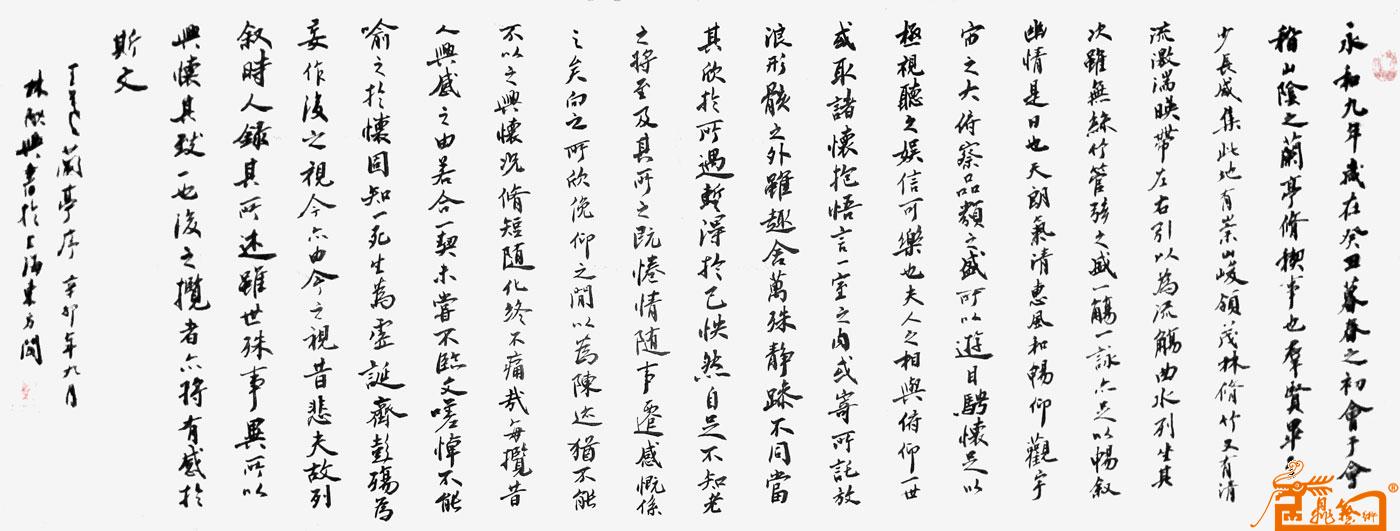 永和九年歲在癸丑暮春之初會于會
稽山陰之蘭亭脩禊事也羣賢畢至
少長咸集此地有崇山峻領茂林脩竹又有清
流激湍暎帶左右引以為流觴曲水列坐其
次雖無絲竹管弦之盛一觴一詠亦足以暢敘
幽情是日也天朗氣清惠風和暢仰觀宇
宙之大俯察品類之盛所以遊目騁懷足以
極視聽之娛信可樂也夫人之相與俯仰一世
或取諸懷抱悟言一室之內或寄所託放
浪形骸之外雖趣舍萬殊靜躁不同當
其欣於所遇暫得於己怏然自足不知老
之將至及其所之既惓情隨事遷感慨係
之矣向之所欣俛仰之閒以為陳迹猶不能
不以之興懷況脩短隨化終不痛哉每攬昔
人興感之由若合一契未嘗不臨文嗟悼不能
喻之於懷固知一死生為虛誕齊彭殤為
妄作後之視今亦由今之視昔悲夫故列
敘時人錄其所述雖世殊事異所以
興懷其致一也後之攬者亦將有感於
斯文
蘭亭序 辛卯年九月
林欣興書於上海東方閣